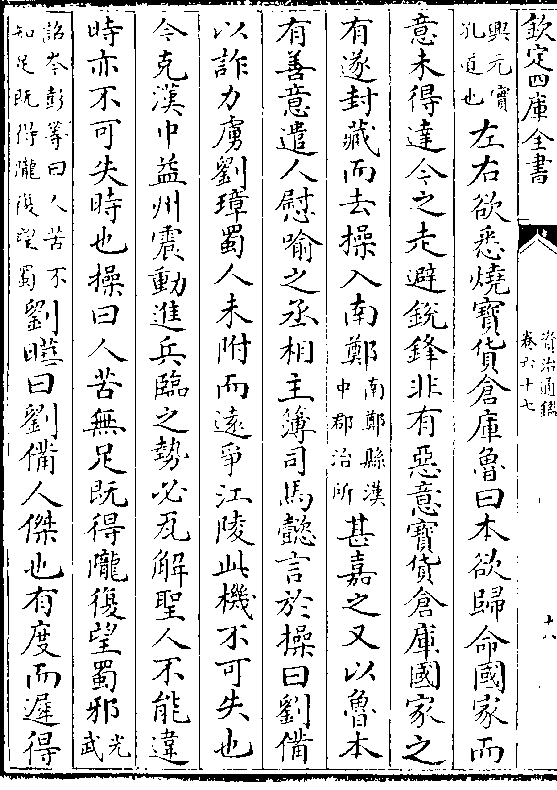 欽定四庫全書
資治通鑑
卷六十七
十八
興元實
孔道也
左右欲悉燒寶貨倉庫魯曰本欲歸命國家而
意未得達今之走避銳鋒非有惡意寶貨倉庫國家之
有遂封藏而去操入南鄭
南鄭縣漢
中郡治所
甚嘉之又以魯本
有善意遣人慰喻之丞相主簿司馬懿言於操曰劉備
以詐力虜劉璋蜀人未附而遠爭江陵此機不可失也
今克漢中益州震動進兵臨之勢必瓦解聖人不能違
時亦不可失時也操曰人苦無足既得隴復望蜀邪
光
武
詔岑彭等曰人苦不
知足既得隴復望蜀
劉曄曰劉備人傑也有度而遲得